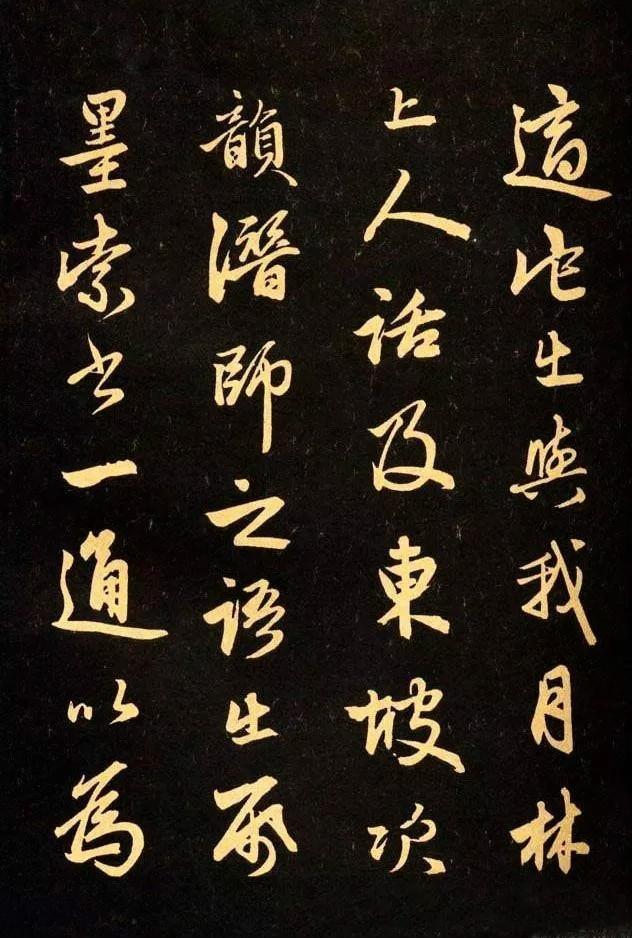 適他出與我月林
上人話及東坡次
韻潛師之語出帋
墨索書一通以為